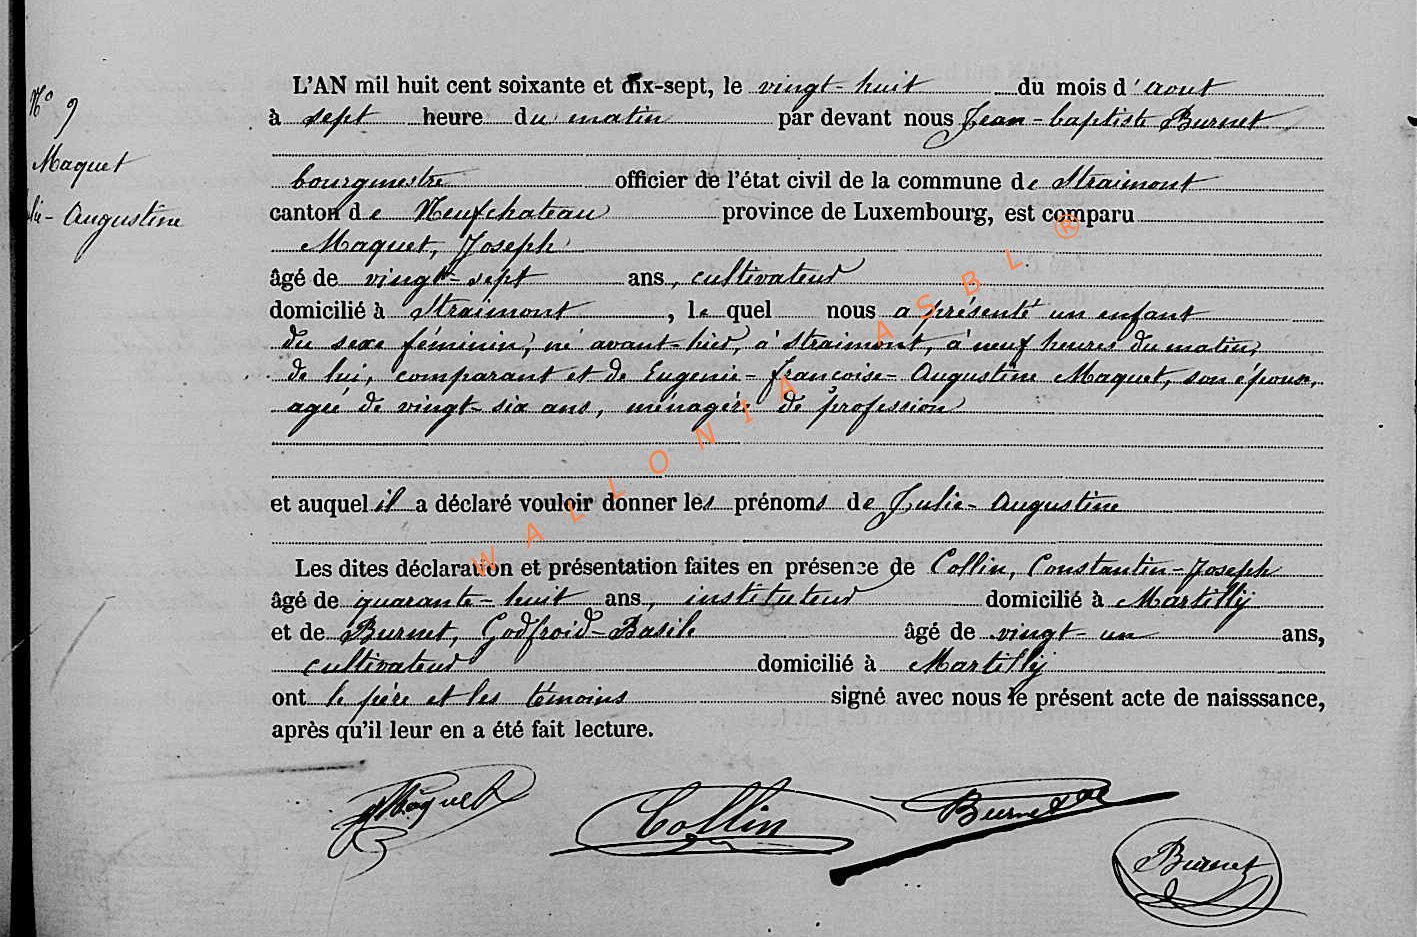 L'AN mil huit cent soixante et dix-sept, le vingt-huit du mois d'aout
N° 9
à sept heure du matin par devant nous Jean-baptiste Burnet
Maquet
bourgmestre officier de l'état civil de la commune de Straimont
lie-Augustine
canton de Neufchateau province de Luxembourg, est comparu
Maquet, Joseph
âgé de vingt-sept ans, cultivateur
domicilié à Straimont, le quel nous a présenté un enfant
du sexe féminin, né avant-hier, à Straimont, à neuf heures du matin,
de lui, comparant et de Eugenie-françoise-Augustine Maquet, son épouse,
agée de vingt-six ans, ménagère de profession
et auquel il a déclaré vouloir donner les prénoms de Julie-Augustine
Les dites déclaration et présentation faites en présence de Collin, Constantin-Joseph
âgé de quarante-huit ans, instituteur domicilié à Martilly
et de Burnet, Godfroid-Basile âgé de vingt-un ans,
cultivateur domicilié à Martilly
ont le père et les témoins signé avec nous le présent acte de naisssance,
après qu'il leur en a été fait lecture.
WALLONIA ASBL ®
Maquet
Collin
Burnet
Burnet